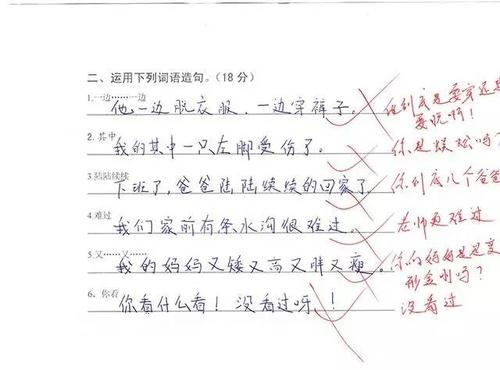 二、运用下列词语造句。(18分)
1.一边……一边
他一边脱衣服，一边穿裤子。
他到底是要穿还是
要脱啊！
2. 其中
我的其中一只左脚受伤了。
你是蜈蚣吗？
3.陆陆续续
下班了，爸爸陆陆续续的回家了。
你到底几个爸爸
4.难过
我们家前有条水沟很难过。
老师更难过
5.又……又……
我的妈妈又矮又高又胖又瘦。
你的妈妈是变
形金刚吗？
6、你看
你看什么看！没看过呀！！
没看过